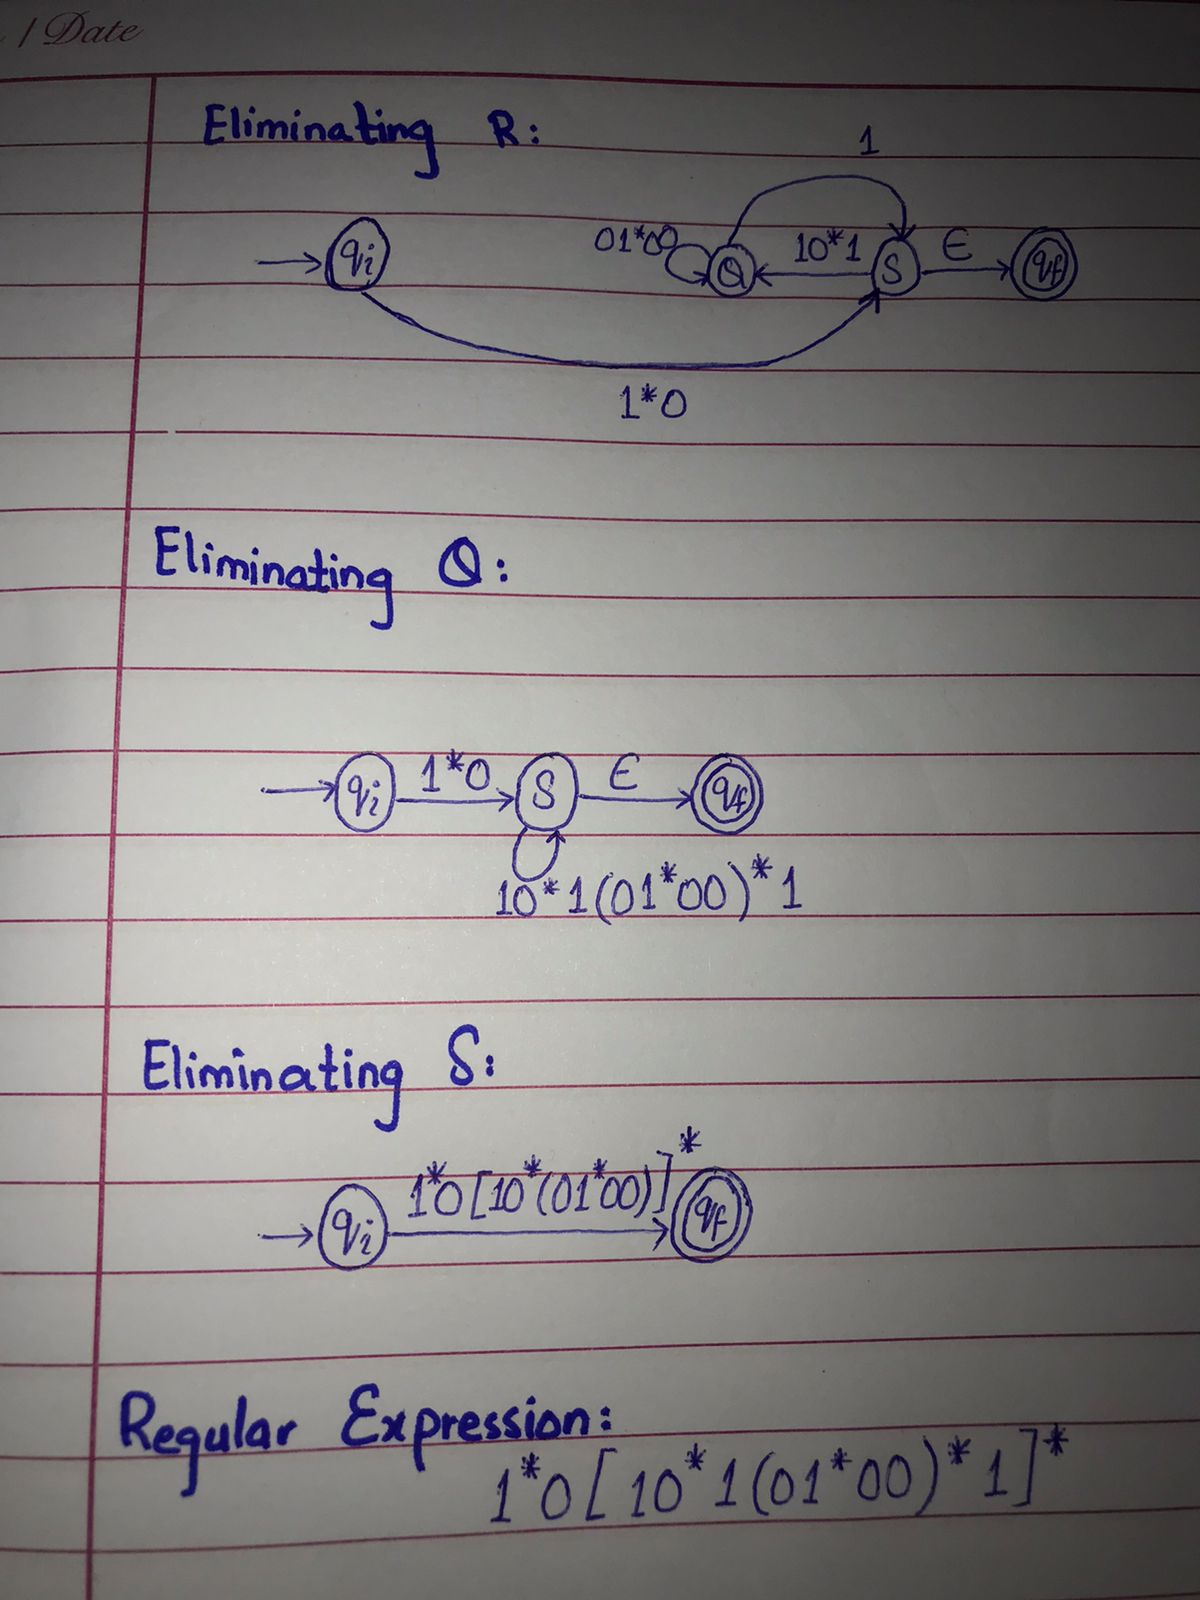 / Date
Eliminating R:
1
01*00 10*1 ε
qi Q S qf
1*0
Eliminating Q:
1*0 ε
qi S qf
10*1(01*00)*1
Eliminating S:
1*0[10*(01*00)]*
qi qf
Regular Expression:
1*0[10*1(01*00)*1]*